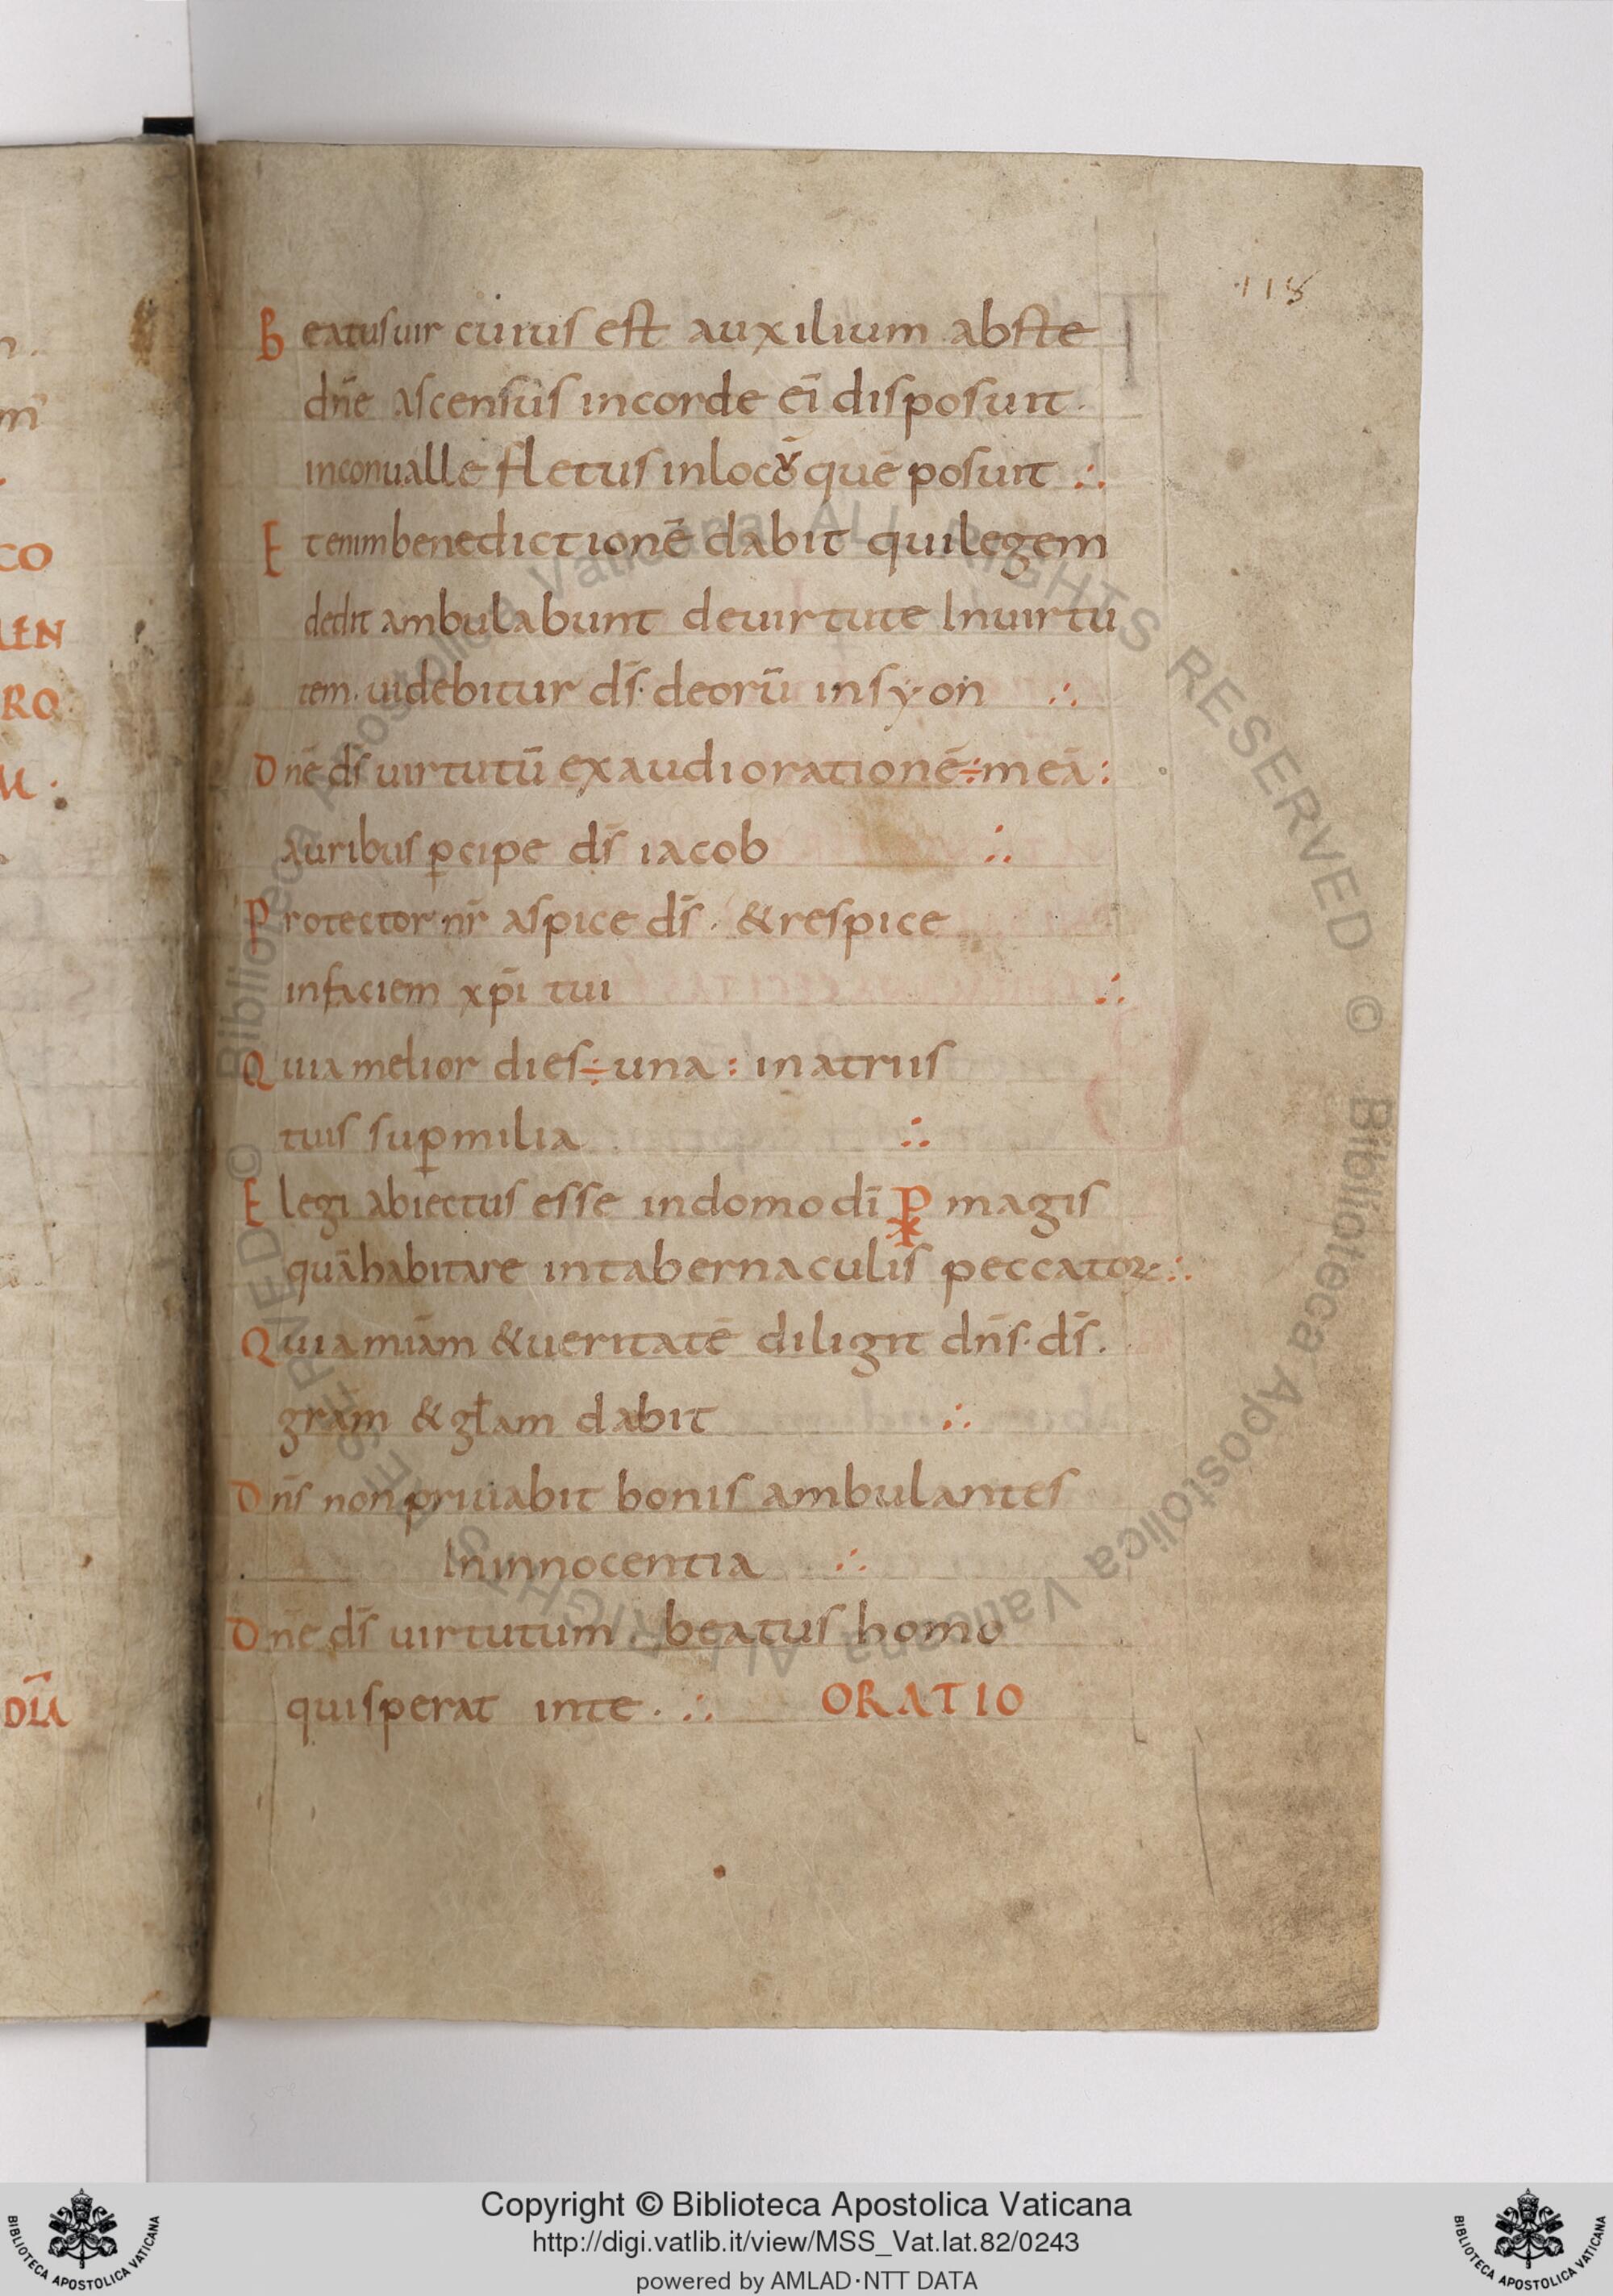 118
Beatus uir cuius est auxilium abs te
dn̄e ascensus in corde ei disposuit.
in conualle fletus in loco quē posuit ∴
Etenim benedictionē dabit qui legem
dedit ambulabunt de uirtute In uirtu
tem. uidebitur ds̄. deorū in syon ∴
Dn̄e ds̄ uirtutū exaudi orationē÷meā:
auribus ꝑcipe ds̄ iacob ∴
Protector nr̄ aspice ds̄. & respice
in faciem xp̄i tui ∴
Quia melior dies÷una: in atriis
tuis suꝑ milia ∴
Elegi abiectus esse in domo dī magis
quā habitare in tabernaculis peccatoꝝ ∴
Quia miām & ueritatē diligit dn̄s. ds̄.
grām & gl̄am dabit ∴
Dn̄s non priuabit bonis ambulantes
In innocentia ∴
Dn̄e ds̄ uirtutum. beatus homo
qui sperat in te. ∴ ORATIO
CO
RO
Copyright © Biblioteca Apostolica Vaticana
http://digi.vatlib.it/view/MSS_Vat.lat.82/0243
powered by AMLAD·NTT DATA
BIBLIOTECA APOSTOLICA VATICANA
BIBLIOTECA APOSTOLICA VATICANA